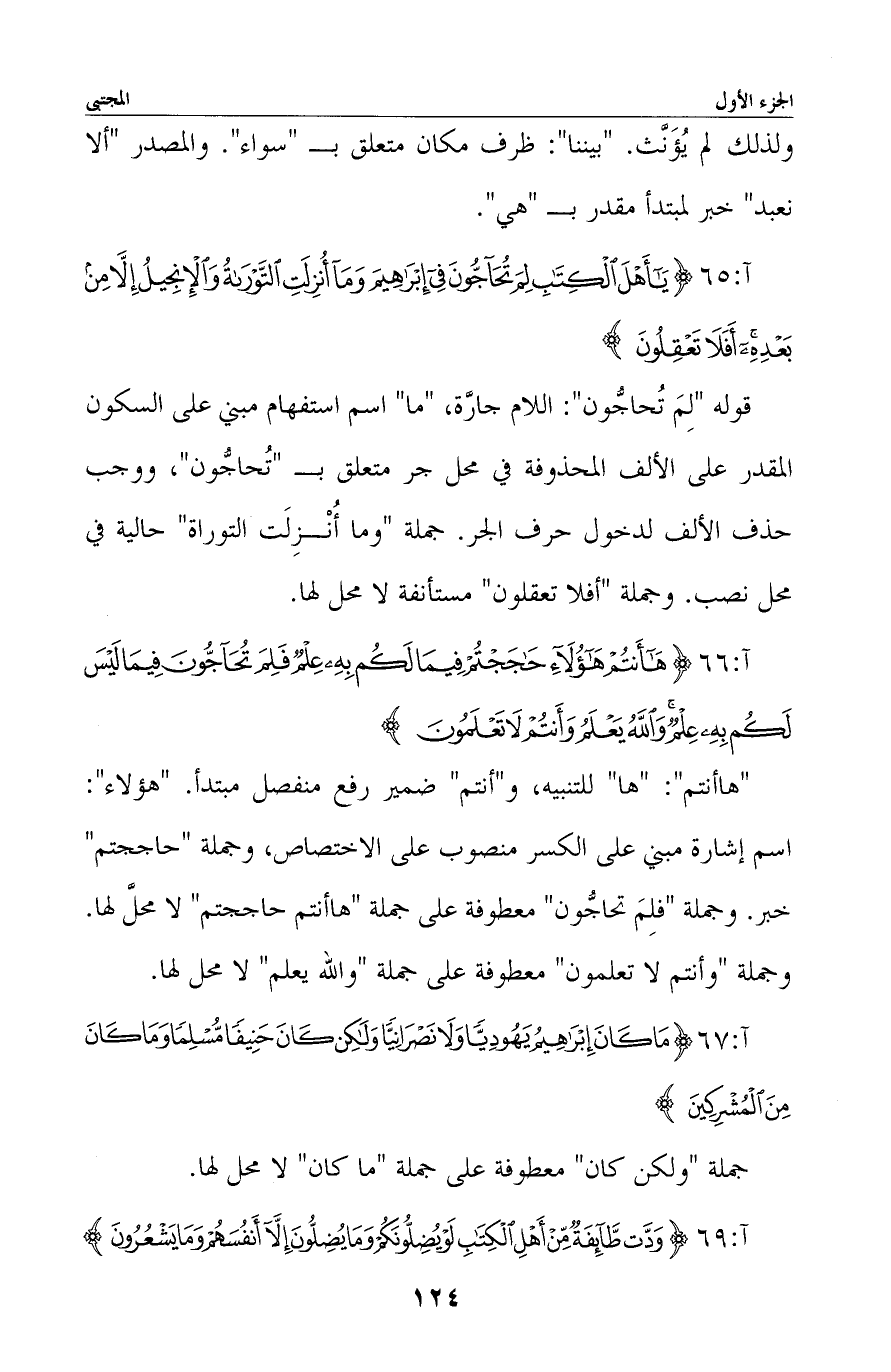 الجزء الأول المجتبى
ولذلك لم يُؤَنَّث. "بيننا": ظرف مكان متعلق بـــ "سواء". والمصدر "ألا
نعبد" خبر لمبتدأ مقدر بـــ "هي".
آ:٦٥ ﴿ يَٰٓأَهۡلَ ٱلۡكِتَٰبِ لِمَ تُحَآجُّونَ فِيٓ إِبۡرَٰهِيمَ وَمَآ أُنزِلَتِ ٱلتَّوۡرَىٰةُ وَٱلۡإِنجِيلُ إِلَّا مِنۢ
بَعۡدِهِۦٓۚ أَفَلَا تَعۡقِلُونَ ﴾
قوله "لِمَ تُحاجُّون": اللام جارَّة، "ما" اسم استفهام مبني على السكون
المقدر على الألف المحذوفة في محل جر متعلق بـــ "تُحاجُّون"، ووجب
حذف الألف لدخول حرف الجر. جملة "وما أُنْـــزِلَت التوراة" حالية في
محل نصب. وجملة "أفلا تعقلون" مستأنفة لا محل لها.
آ:٦٦ ﴿ هَٰٓأَنتُمۡ هَٰٓؤُلَآءِ حَٰجَجۡتُمۡ فِيمَا لَكُم بِهِۦ عِلۡمٞ فَلِمَ تُحَآجُّونَ فِيمَا لَيۡسَ
لَكُم بِهِۦ عِلۡمٞۚ وَٱللَّهُ يَعۡلَمُ وَأَنتُمۡ لَا تَعۡلَمُونَ ﴾
"هاأنتم": "ها" للتنبيه، و"أنتم" ضمير رفع منفصل مبتدأ. "هؤلاء":
اسم إشارة مبني على الكسر منصوب على الاختصاص، وجملة "حاججتم"
خبر. وجملة "فلِمَ تحاجُّون" معطوفة على جملة "هاأنتم حاججتم" لا محلَّ لها.
وجملة "وأنتم لا تعلمون" معطوفة على جملة "والله يعلم" لا محل لها.
آ:٦٧ ﴿ مَا كَانَ إِبۡرَٰهِيمُ يَهُودِيّٗا وَلَا نَصۡرَانِيّٗا وَلَٰكِن كَانَ حَنِيفٗا مُّسۡلِمٗا وَمَا كَانَ
مِنَ ٱلۡمُشۡرِكِينَ ﴾
جملة "ولكن كان" معطوفة على جملة "ما كان" لا محل لها.
آ:٦٩ ﴿ وَدَّت طَّآئِفَةٞ مِّنۡ أَهۡلِ ٱلۡكِتَٰبِ لَوۡ يُضِلُّونَكُمۡ وَمَا يُضِلُّونَ إِلَّآ أَنفُسَهُمۡ وَمَا يَشۡعُرُونَ ﴾
١٢٤